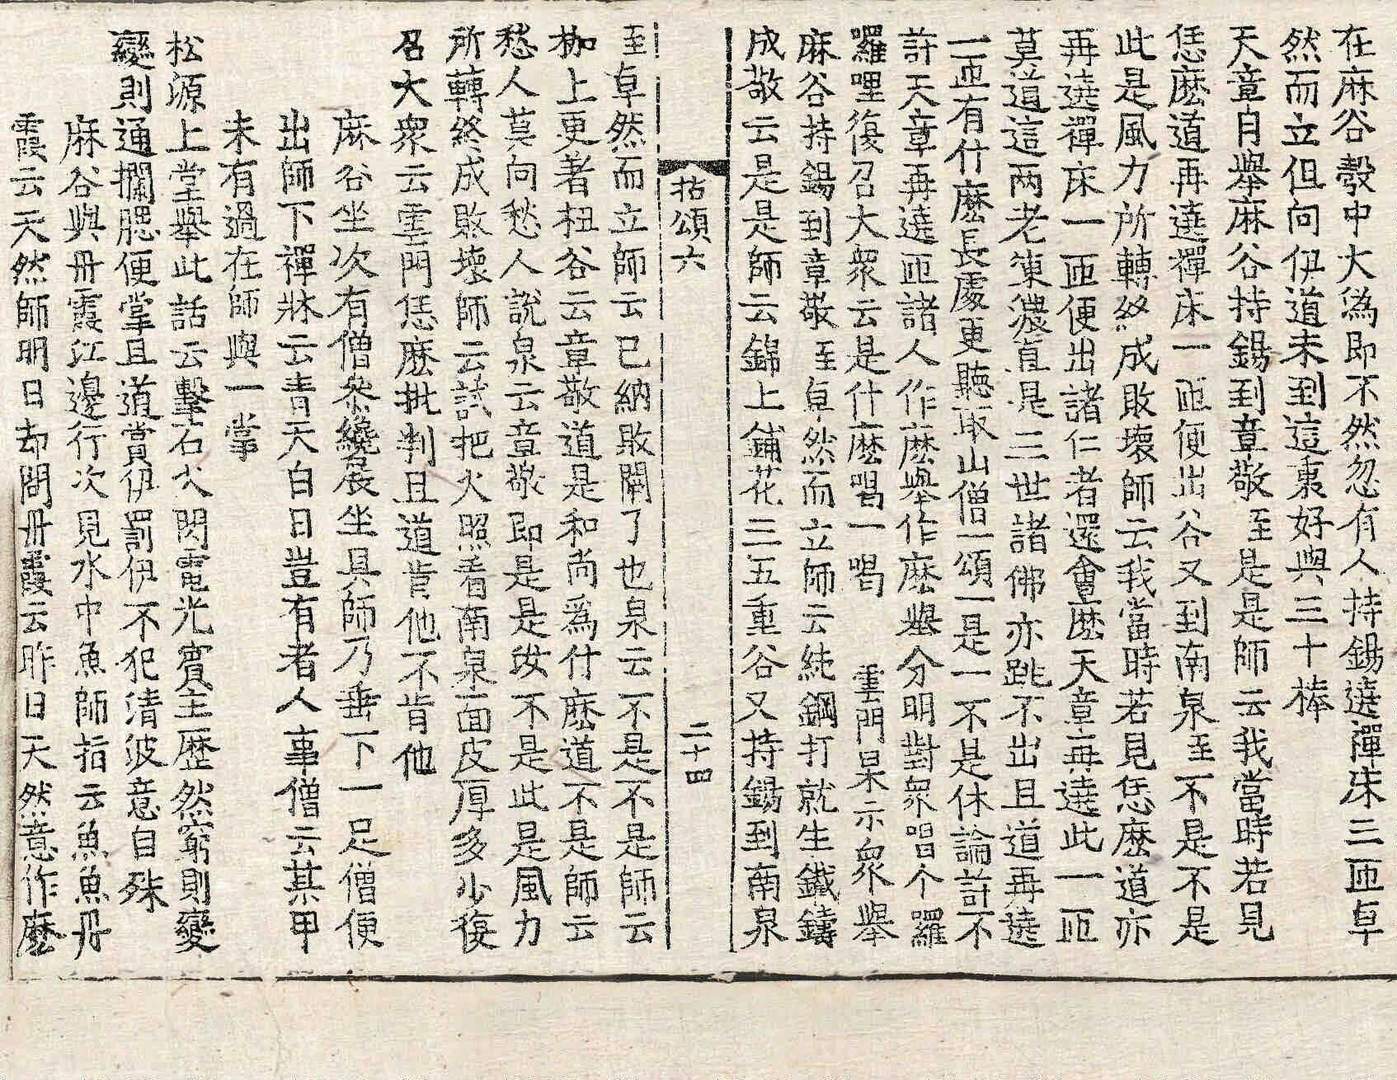 在麻谷彀中大溈即不然忽有人持錫遶禪床三匝卓
然而立但向伊道未到這裏好與三十棒
天章自舉麻谷持錫到章敬至是是師云我當時若見
恁麽道再遶禪床一匝便出谷又到南泉至不是不是
此是風力所轉終成敗壞師云我當時若見恁麽道亦
再遶禪床一匝便出諸仁者還會麽天章再遶此一匝
莫道這兩老凍濃直是三世諸佛亦跳不出且道再遶
一匝有什麽長處更聽取山僧一頌一是一不是休論計不
計天章再遶匝諸人作麽舉作麽舉分明對衆唱个羅
囉哩復召大衆云是什麽喝一喝 雲門杲示衆舉
麻谷持錫到章敬至卓然而立師云純鋼打就生鐵鑄
成敬云是是師云錦上鋪花三五重谷又持錫到南泉
拈頌六 二十四
至卓然而立師云已納敗闕了也泉云不是不是師云
枷上更著杻谷云章敬道是和尚爲什麽道不是師云
愁人莫向愁人說泉云章敬即是是汝不是此是風力
所轉終成敗壞師云試把火照看南泉面皮厚多少復
召大衆云雲門恁麽批判且道肯他不肯他
麻谷坐次有僧參纔展坐具師乃垂下一足僧便
出師下禪牀云青天白日豈有者人事僧云某甲
未有過在師與一掌
松源上堂舉此話云擊石火閃電光賓主歷然窮則變
變則通攔腮便掌且道賞伊罰伊不犯清波意自殊
麻谷與丹霞江邊行次見水中魚師指云魚魚丹
霞云天然師明日却問丹霞云昨日天然意作麽